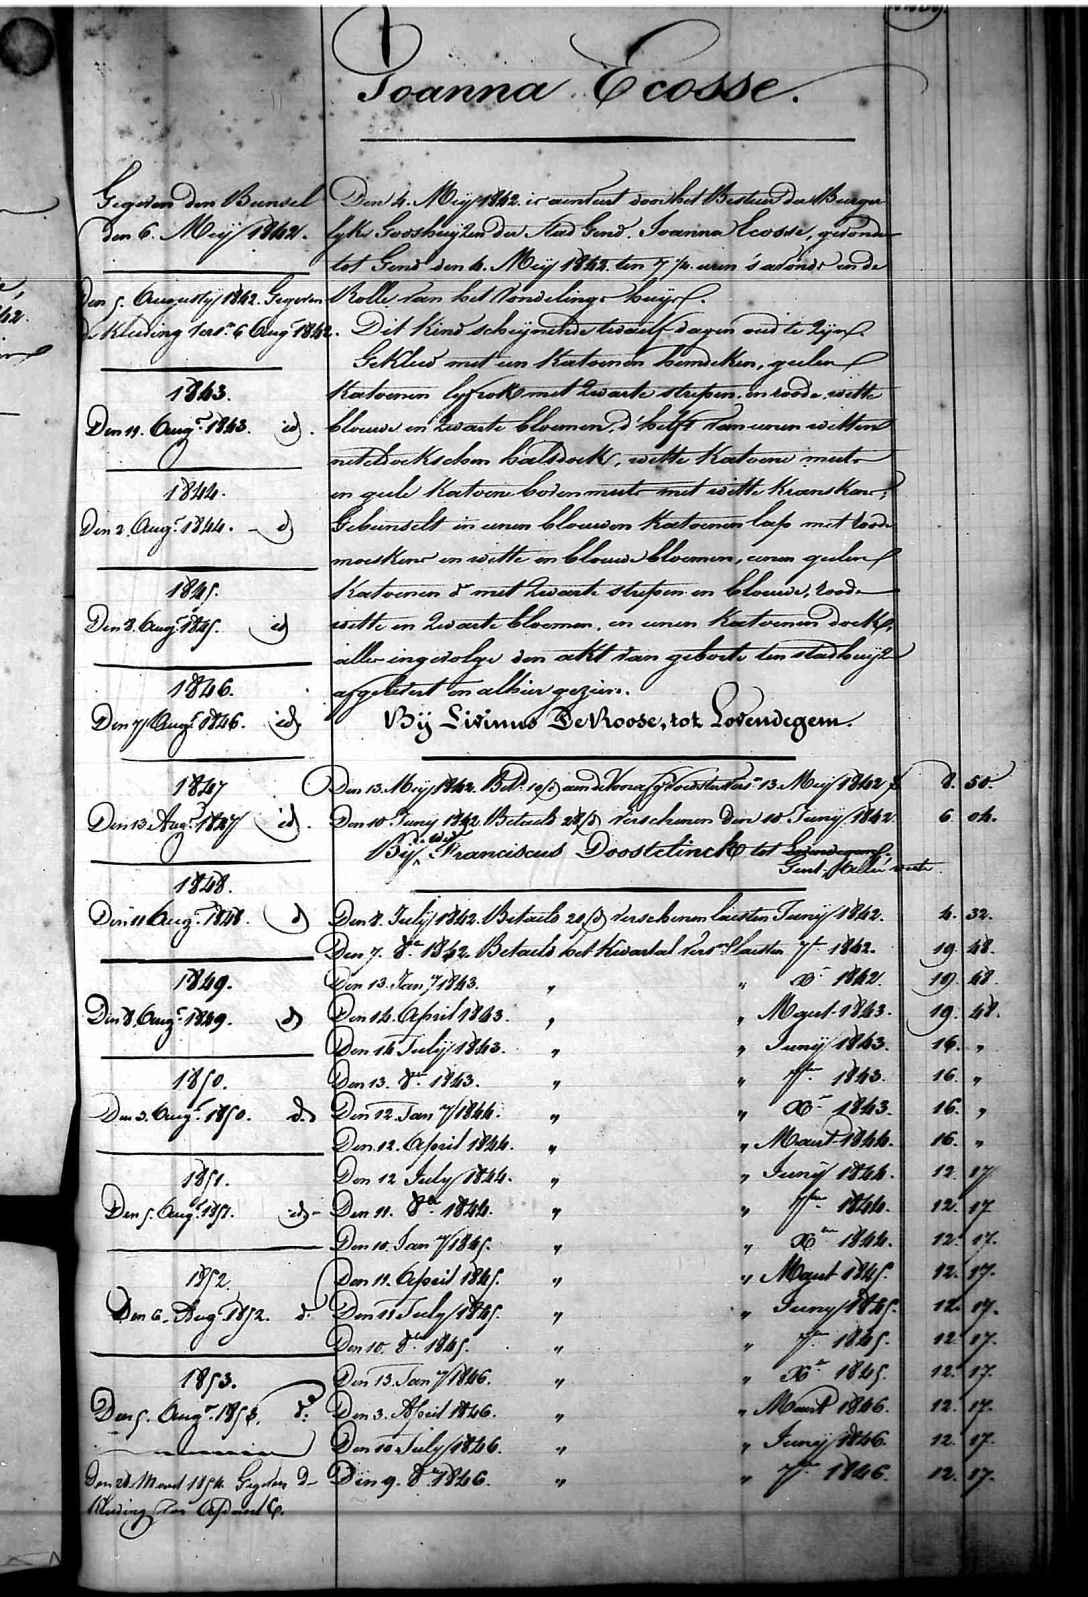 Joanna Ecosse.
Gegeven den Bunsel
den 6. Meij 1842.
Den 5. Augusty 1842. Gegeven
de Kleeding vers.n 6 Aug.t 1842.
1843.
Den 11. Aug.t 1843. id.
1844.
Den 2. Aug.t 1844. - d
1845.
Den 8. Aug.t 1845. id
1846.
Den 7 Aug.t 1846. id
1847
Den 13 Aug.t 1847 id.
1848.
Den 11 Aug.t 1848. d
1849.
Den 8. Aug.t 1849. d
1850.
Den 3. Aug.t 1850. d.
1851.
Den 5. Aug.t 1851. id -
1852.
Den 6. Aug 1852. d.
1853.
Den 5. Aug.t 1853. d.
Den 28. Maert 1854. Gegeven d-
Kleeding
Den 4. Meij 1842. is aenveert door het Bestuer der Burger
lyke Godshuyzen der stad Gend. Joanna Ecosse, gevonden
tot Gend den 4. Meij 1842. ten 7 1/2 uren 's avonds in de
Rolle van het Vondelings huys.
Dit kind scheynende twaelf dagen oud te zijn.
Gekleed met een katoenen hemdeken, geelen
katoenen lyfrok met zwarte strepen en roode, witte
blouwe en zwarte bloemen, d'helft van eenen witten
neteldoekschen halsdoek, witte katoene muts
en geele katoene bovenmuts met witte kranskens,
Gebunselt in eenen blouwen katoenen lap met roode
moeskens en witte en blouwe bloemen, eenen geelen
katoenen d met zwarte strepen en blouwe, roode
witte en zwarte bloemen, en eenen katoenen doek,
alles ingevolge den akt van geboorte ten stadhuyze
afgelevert en alhier gezien.
Bij Livinus De Roose, tot Lovendegem.
Den 13. Meij 1842. Bet.d 10/d aen de Voedster vers.n 13 Meij 1842 8. 50.
Den 10 Juny 1842. Betaeld 28/d verschenen den 10 Junij 1842 6 04.
Bij Franciscus Doostelinck tot Lovendegem
Gent
Den 8. July 1842. Betaeld 20/d verschenen laesten Junij 1842. 4. 32.
Den 7. 8.re 1842. Betaeld het Kwartael vers.n laesten 7.re 1842. 19. 48.
Den 13. Jan.y 1843. " " X.re 1842. 19. 48.
Den 14. April 1843. " " Maert 1843. 19. 48.
Den 14 July 1843. " " Junij 1843. 16. "
Den 13. 8.re 1843. " " 7.re 1843. 16. "
Den 12. Jan.y 1844. " " X.re 1843. 16. "
Den 12. April 1844. " " Maert 1844. 16. "
Den 12 July 1844. " " Junij 1844. 12. 17
Den 11. 8.re 1844. " " 7.re 1844. 12. 17
Den 10. Jan.y 1845. " " X.re 1844. 12. 17.
Den 11. April 1845. " " Maert 1845. 12. 17.
Den 11 July 1845. " " Juny 1845. 12. 17.
Den 10. 8.re 1845. " " 7.re 1845. 12. 17.
Den 13. Jan.y 1846. " " X.re 1845. 12. 17.
Den 3. April 1846. " " Maert 1846. 12. 17.
Den 10 July 1846. " " Junij 1846. 12. 17.
Den 9. 8.re 1846. " " 7.re 1846. 12. 17.